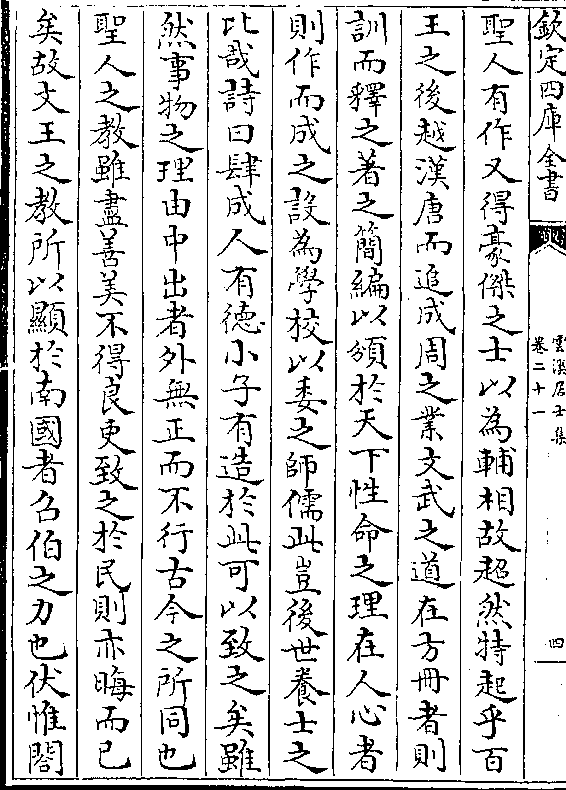 欽定四庫全書
雲溪居士集
卷二十一
四
聖人有作又得豪傑之士以為輔相故超然特起乎百
王之後越漢唐而追成周之業文武之道在方冊者則
訓而釋之著之簡編以頒於天下性命之理在人心者
則作而成之設為學校以委之師儒此豈後世養士之
比哉詩曰肆成人有德小子有造於此可以致之矣雖
然事物之理由中出者外無正而不行古今之所同也
聖人之教雖盡善美不得良吏致之於民則亦晦而已
矣故文王之教所以顯於南國者召伯之力也伏惟閤